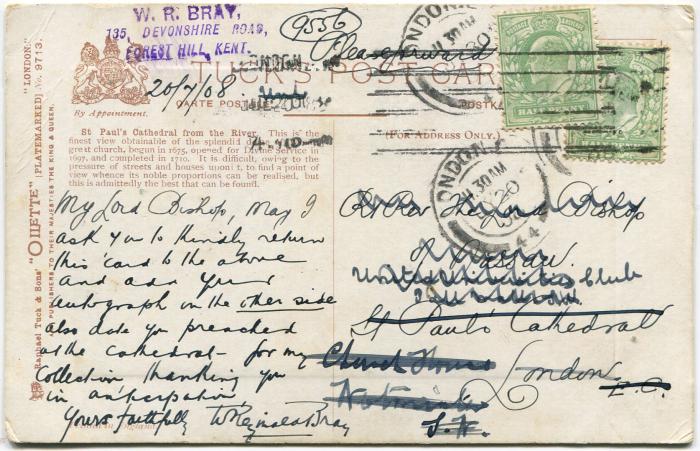 W. R. BRAY,
135, DEVONSHIRE ROAD,
FOREST HILL, KENT.
9556
Please forward
TUCK'S POST CARD
20/7/08
By Appointment.
CARTE POSTALE
POSTKARTE
(FOR ADDRESS ONLY.)
HALFPENNY
LONDON
11.30AM
20
44
St Paul's Cathedral from the River. This is the
finest view obtainable of the splendid
great church, begun in 1675, opened for Divine Service in
1697, and completed in 1710. It is difficult, owing to the
pressure of streets and houses upon it, to find a point
of view whence its noble proportions can be realised, but
this is admittedly the best that can be found.
My Lord Bishop, May I
ask you to kindly return
this card to the above
and add your
autograph on the other side
also date you preached
at the cathedral - for my
Collection thanking you
in anticipation
Yours faithfully W Reginald Bray
Rt Rev The Lord Bishop
of Nassau.
United Universities Club
St Paul's Cathedral
London
E.C.
Church House
S.W.
Raphael Tuck & Sons' "OILETTE" [PLATEMARKED] No. 9713.
"LONDON."
ART PUBLISHERS TO THEIR MAJESTIES THE KING & QUEEN.
Printed in England